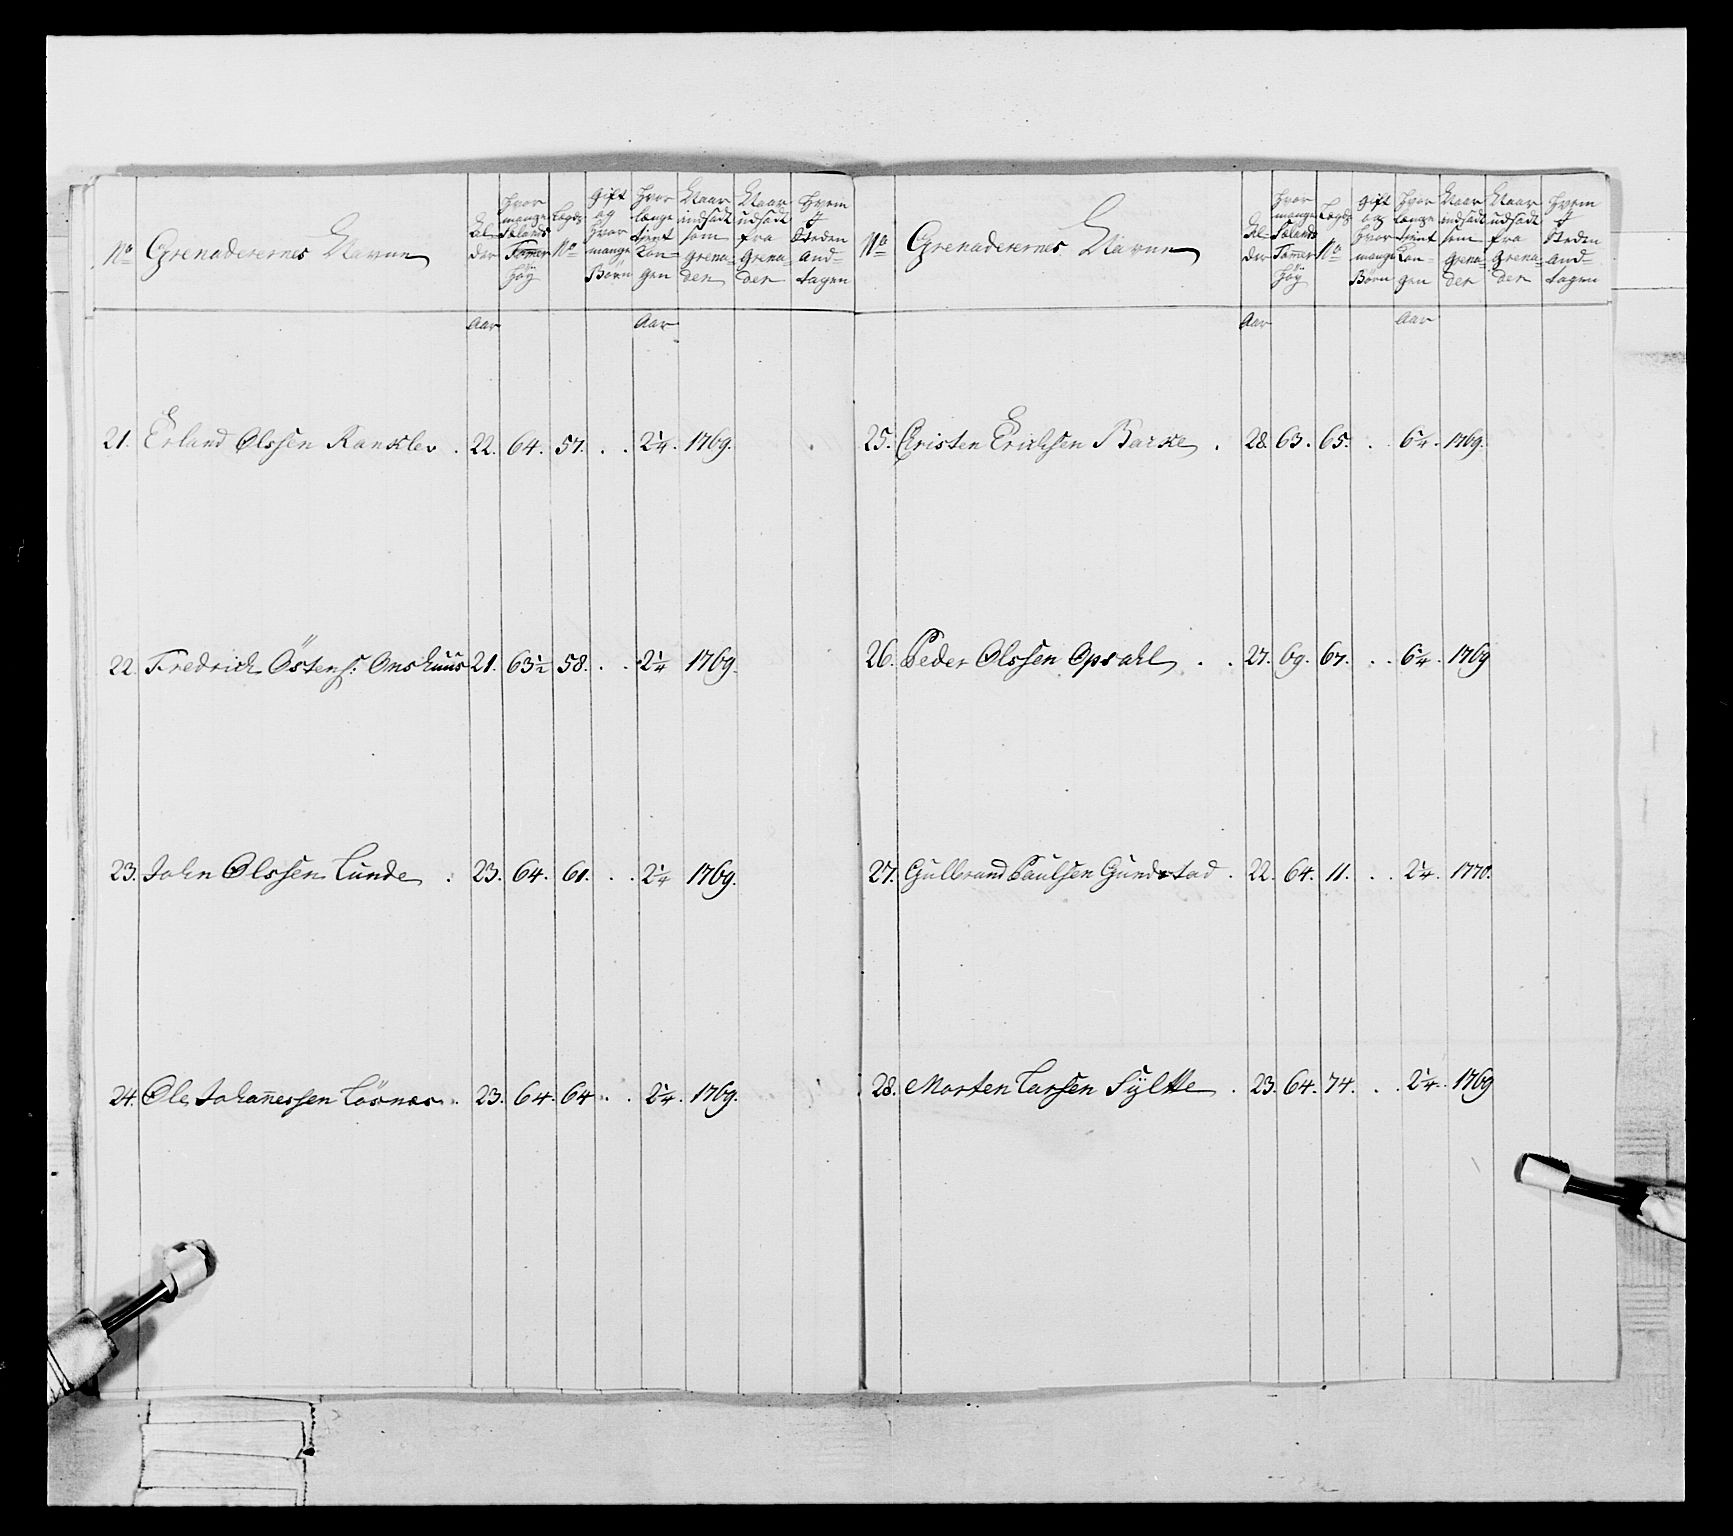 No Grenaderernes Navne Al-der hvor mange Sælands Tomer höÿ Lægds No Gift og hvor mange Börn hvor længe tient Kon-gen Naar indsadt som Grena-der Naar udsadt fra Grena-der hvem J Steden And-tagen
Aar Aar
21. Erland Olssen Ranklev . 22. 64. 57. . . 2¼. 1769.
22. Fredrich Östens: Onshuus 21. 63½ 58. . . 2¼ 1769.
23. John Olssen Lunde . 23. 64. 61. . . 2¼ 1769.
24. Ole Johanessen Lösnæs . 23. 64. 64 . . 2¼. 1769.
No Grenaderernes Navne Al-der hvor mange Sælands Tomer höÿ Lægds No gift og hvor mange Börn hvor længe tient Kon-gen Naar indsadt som Grena-der Naar udsadt fra Grena-der hvem J Steden And-tagen
Aar Aar
25. Christen Erichsen Barke . 28. 63. 65. . . 6¼. 1769.
26. Peder Olssen Opsahl . . 27. 69. 67. . . 6¼. 1769
27. Gulbrand Paulsen Gundstad . 22. 64. 11. . . 2¼. 1770.
28. Morten Larsen Sÿltte . 23. 64. 74. . . 2¼. 1769